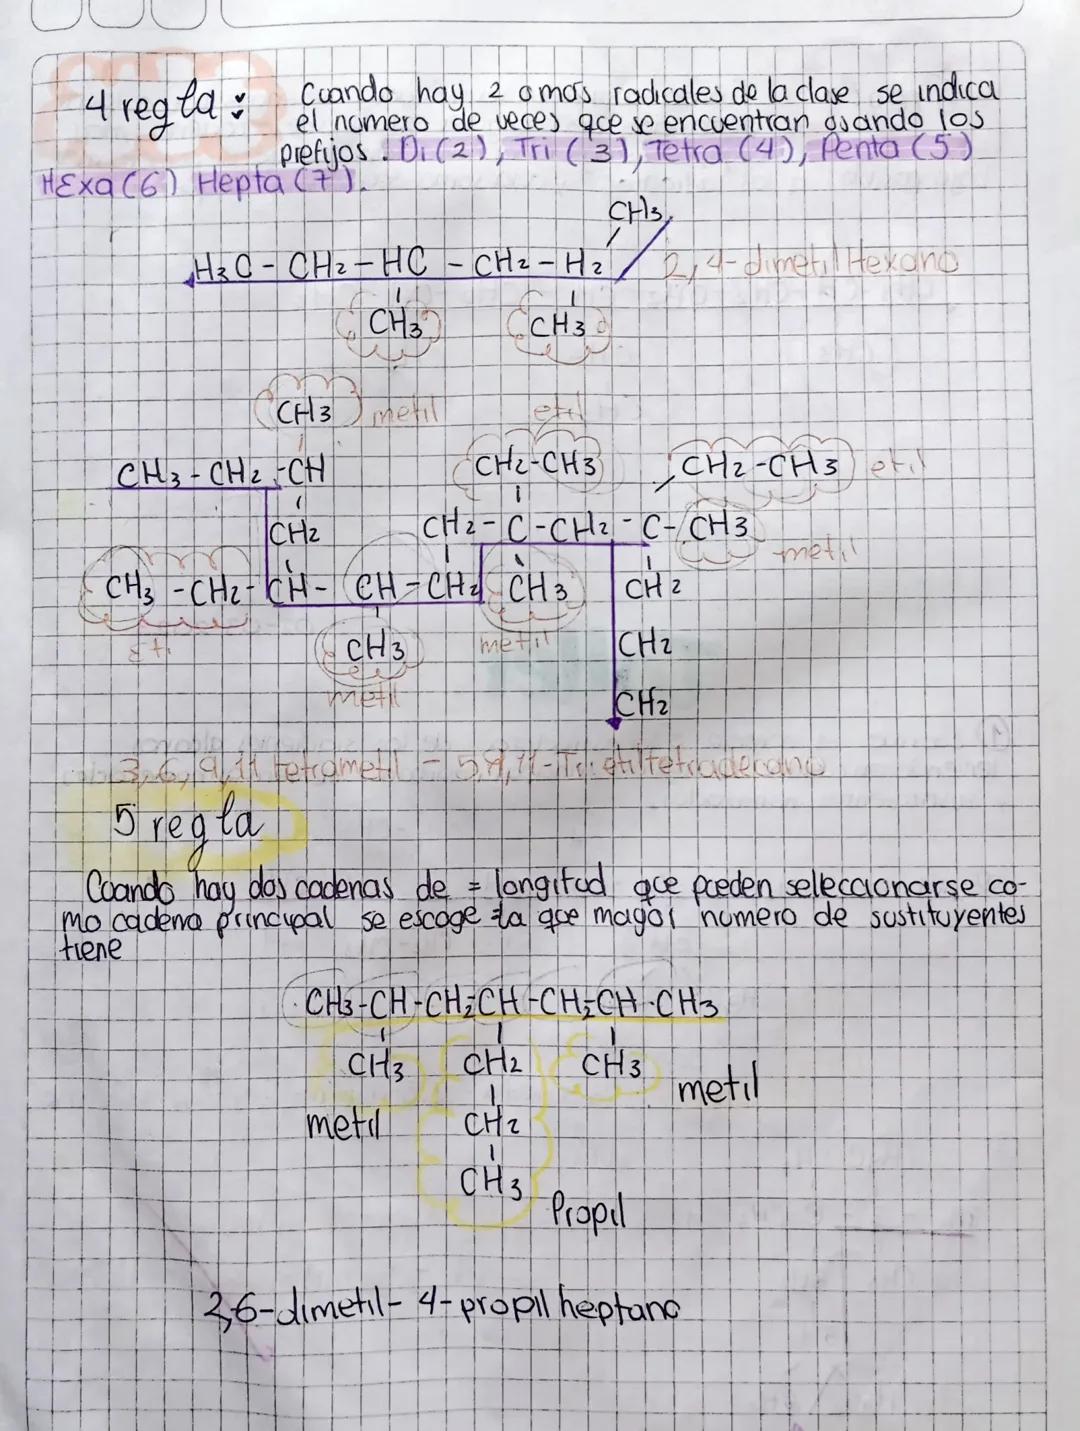 4 regla : Cuando hay 2 o mas radicales de la clase se indica
el numero de veces que se encuentran usando los
prefijos : Di (2), Tri (3), Tetra (4), Penta (5)
HExa (6) Hepta (7).
CH3
H3C - CH2 - HC - CH2 - H2 2,4-dimetil Hexano
CH3 CH3
CH3 metil etil
CH3 - CH2 - CH CH2-CH3 CH2-CH3 etil
CH2 CH2 - C - CH2 - C - CH3
metil
CH3 - CH2 - CH - CH - CH2 CH3 CH2
Eti CH3 metil CH2
metil
CH2
3,6,9,11 tetrametil - 5,9,11-Tri etiltetradecano
5 regla
Cuando hay dos cadenas de = longitud que pueden seleccionarse co-
mo cadena principal se escoge la que mayor numero de sustituyentes
tiene
CH3-CH-CH2-CH-CH2-CH-CH3
CH3 CH2 CH3
metil
metil CH2
CH3
Propil
2,6-dimetil-4-propil heptano